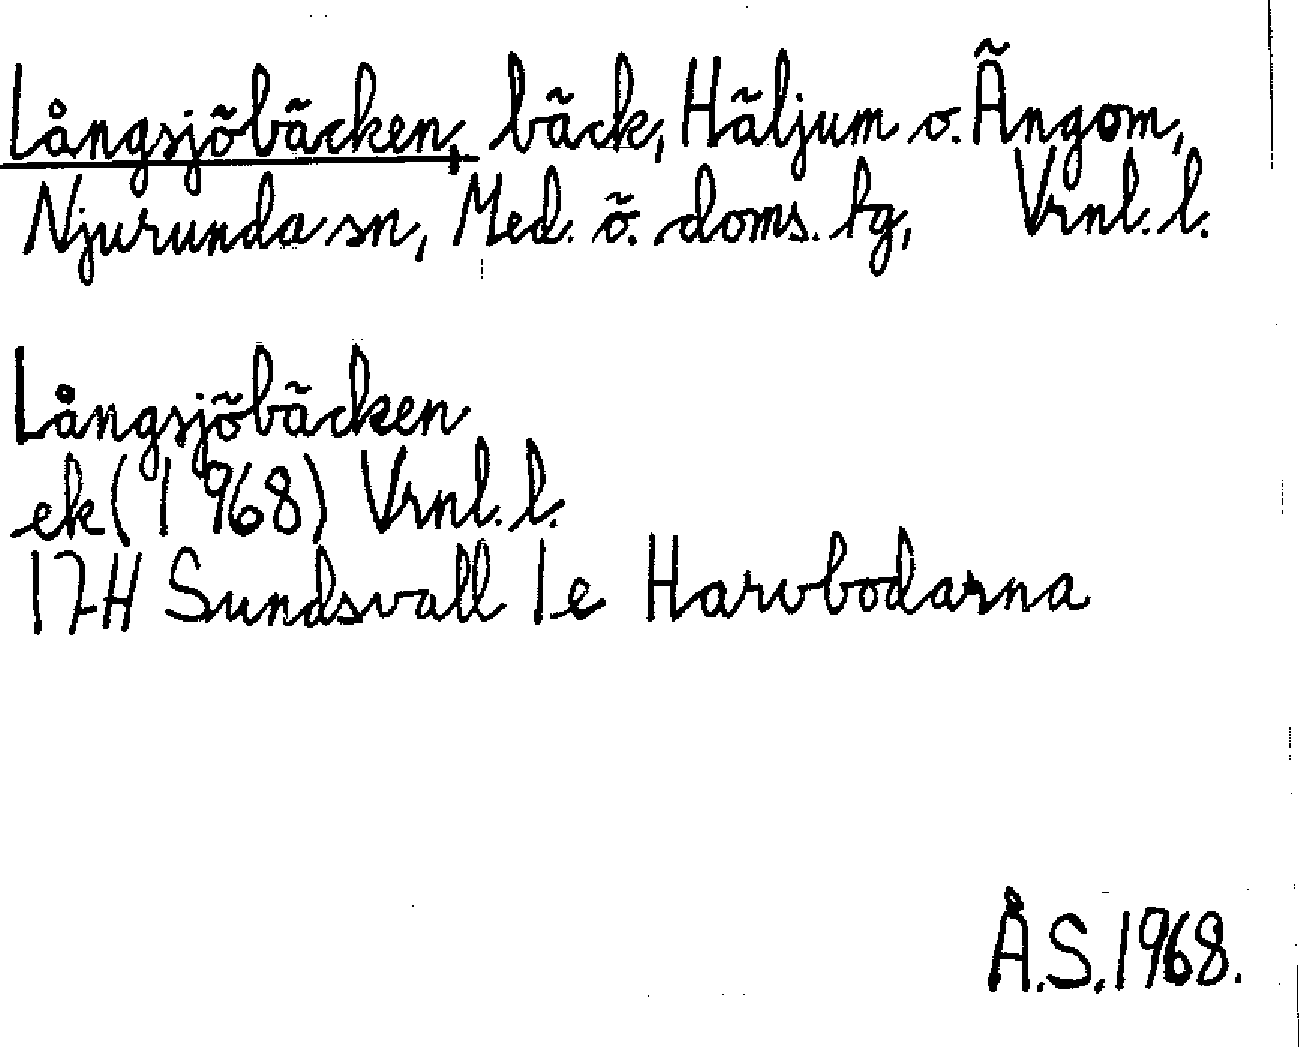 Långsjöbäcken, bäck, Häljum o. Ängom,
Njurunda sn, Med. ö. doms. tg, Vrnl. l.
Långsjöbäcken
ek (1968) Vrnl. l.
17H Sundsvall 1e Harvbodarna
Å.S. 1968.